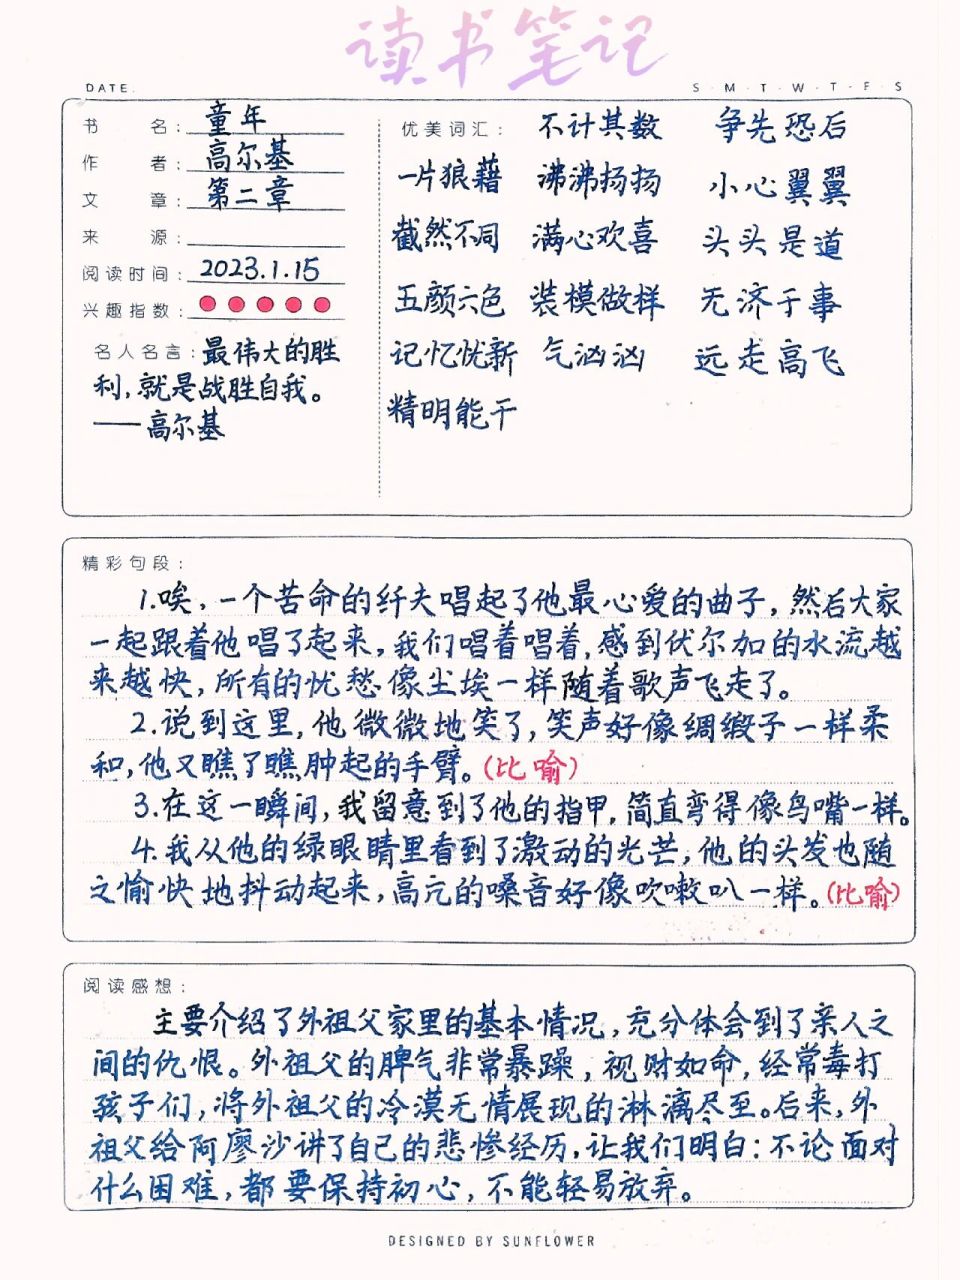 读书笔记
DATE.
S·M·T·W·T·F·S
书名：童年
作者：高尔基
文章：第二章
来源：
阅读时间：2023.1.15
兴趣指数：
名人名言：最伟大的胜
利，就是战胜自我。
——高尔基
优美词汇：不计其数 争先恐后
一片狼藉 沸沸扬扬 小心翼翼
截然不同 满心欢喜 头头是道
五颜六色 装模做样 无济于事
记忆忧新 气汹汹 远走高飞
精明能干
精彩句段：
1.唉，一个苦命的纤夫唱起了他最心爱的曲子，然后大家
一起跟着他唱了起来，我们唱着唱着，感到伏尔加的水流越
来越快，所有的忧愁像尘埃一样随着歌声飞走了。
2.说到这里，他微微地笑了，笑声好像绸缎子一样柔
和，他又瞧了瞧肿起的手臂。(比喻)
3.在这一瞬间，我留意到了他的指甲，简直弯得像鸟嘴一样。
4.我从他的绿眼睛里看到了激动的光芒，他的头发也随
之愉快地抖动起来，高亢的嗓音好像吹嗽叭一样。(比喻)
阅读感想：
主要介绍了外祖父家里的基本情况，充分体会到了亲人之
间的仇恨。外祖父的脾气非常暴躁，视财如命，经常毒打
孩子们，将外祖父的冷漠无情展现的淋漓尽至。后来，外
祖父给阿廖沙讲了自己的悲惨经历，让我们明白：不论面对
什么困难，都要保持初心，不能轻易放弃。
DESIGNED BY SUNFLOWER